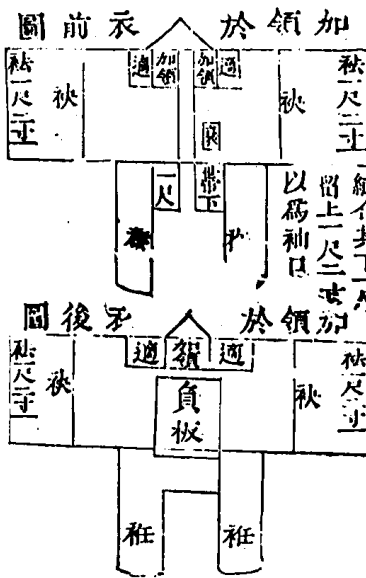 加領於衣前圖
袪一尺二寸
袂
適
加領
加領
適
袂
袪一尺二寸
衰
帶下
一尺
合其下一
留上一尺二寸
以爲袖口
加領於衣後圖
袪一尺二寸
袂
適
領
適
袂
袪一尺二寸
負板
衽
衽